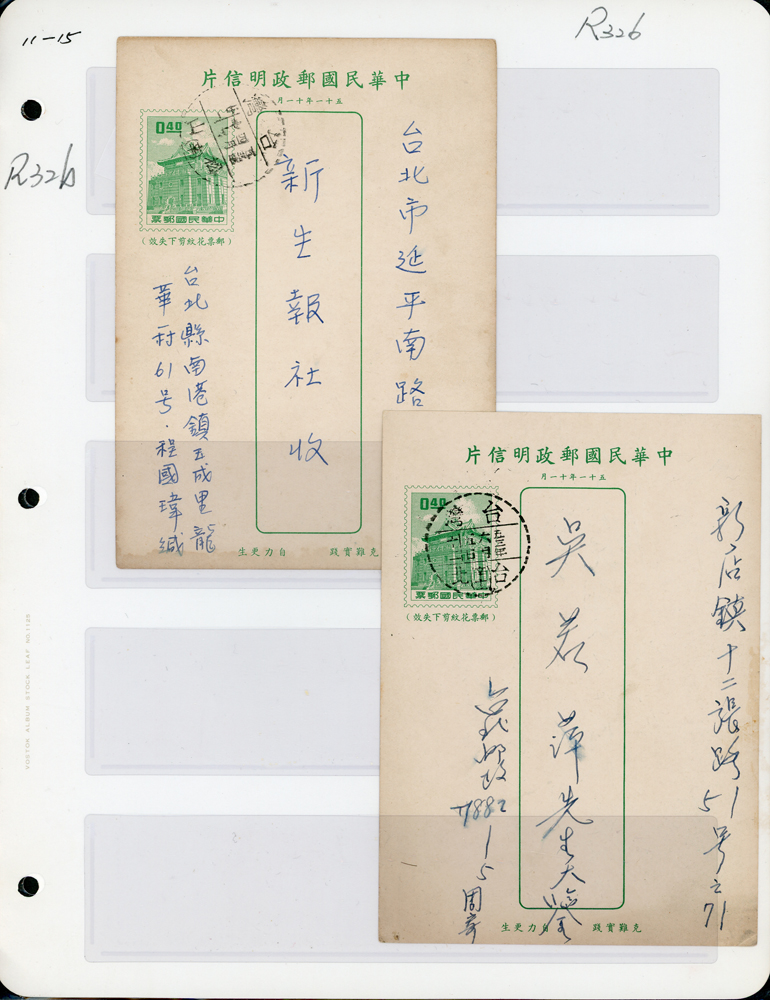 11-15
R326
R326
中華民國郵政明信片
五十一年十一月
0.40
中華民國郵票
(郵票花紋剪下失效)
台北市延平南路
新生報社收
台北縣南港鎮玉成里龍
華村61号.程國瑋緘
自力更生 克難實踐
中華民國郵政明信片
五十一年十一月
0.40
中華民國郵票
(郵票花紋剪下失效)
台灣
新店鎮十二張路
51号之71
吳若萍先生大鑒
7882
15周寄
自力更生 克難實踐
VOSTOK ALBUM STOCK LEAF NO.1125